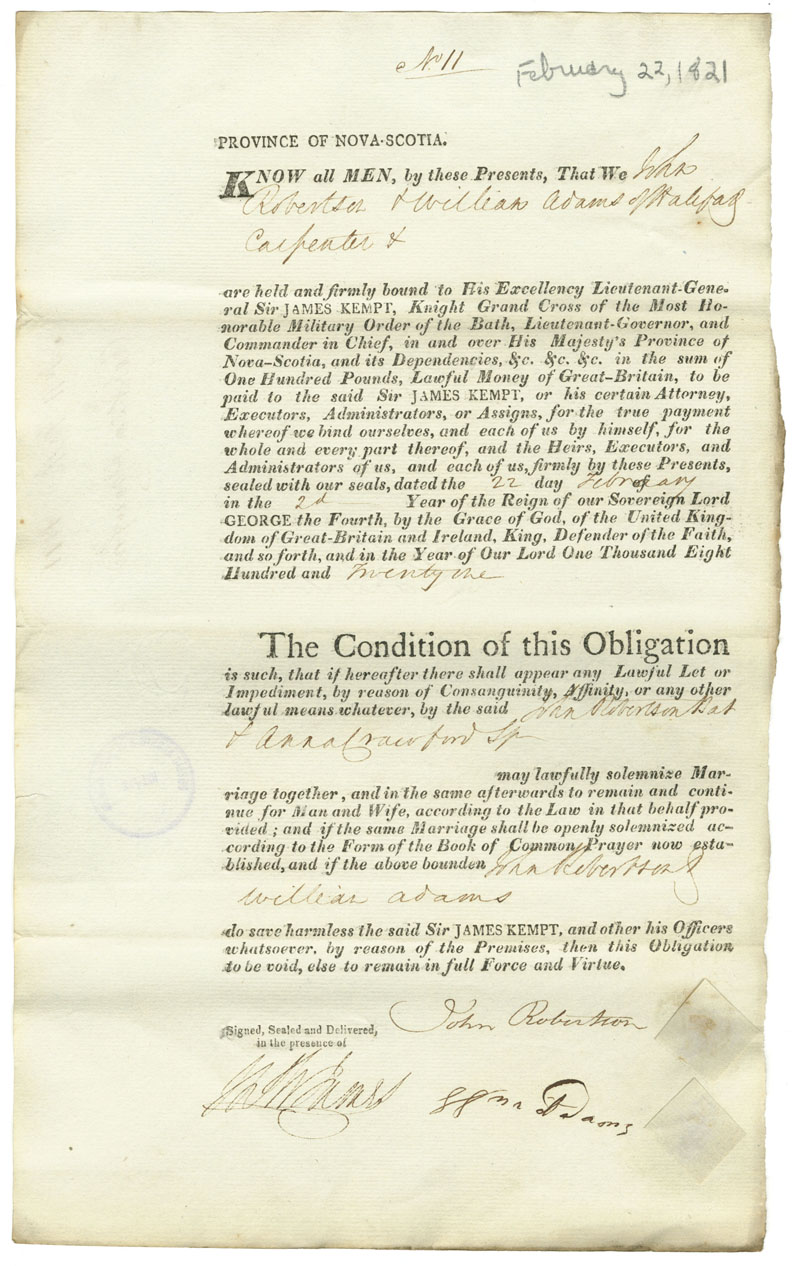 No 11
February 22, 1821
PROVINCE OF NOVA-SCOTIA.
KNOW all MEN, by these Presents, That We John
Robertson & William Adams of Halifax
Carpenter &
are held and firmly bound to His Excellency Lieutenant-Gene-
ral Sir JAMES KEMPT, Knight Grand Cross of the Most Ho-
norable Military Order of the Bath, Lieutenant-Governor, and
Commander in Chief, in and over His Majesty's Province of
Nova-Scotia, and its Dependencies, &c. &c. &c. in the sum of
One Hundred Pounds, Lawful Money of Great-Britain, to be
paid to the said Sir JAMES KEMPT, or his certain Attorney,
Executors, Administrators, or Assigns, for the true payment
whereof we bind ourselves, and each of us by himself, for the
whole and every part thereof, and the Heirs, Executors, and
Administrators of us, and each of us, firmly by these Presents,
sealed with our seals, dated the 22 day of February
in the 2d Year of the Reign of our Sovereign Lord
GEORGE the Fourth, by the Grace of God, of the United King-
dom of Great-Britain and Ireland, King, Defender of the Faith,
and so forth, and in the Year of Our Lord One Thousand Eight
Hundred and Twenty one
The Condition of this Obligation
is such, that if hereafter there shall appear any Lawful Let or
Impediment, by reason of Consanguinity, Affinity, or any other
lawful means whatever, by the said John Robertson Bat
& Anna Crawford Sp
may lawfully solemnize Mar-
riage together, and in the same afterwards to remain and conti-
nue for Man and Wife, according to the Law in that behalf pro-
vided; and if the same Marriage shall be openly solemnized ac-
cording to the Form of the Book of Common Prayer now esta-
blished, and if the above bounden John Robertson &
William Adams
do save harmless the said Sir JAMES KEMPT, and other his Officers
whatsoever, by reason of the Premises, then this Obligation
to be void, else to remain in full Force and Virtue.
John Robertson
Signed, Sealed and Delivered,
in the presence of
Wm Adams